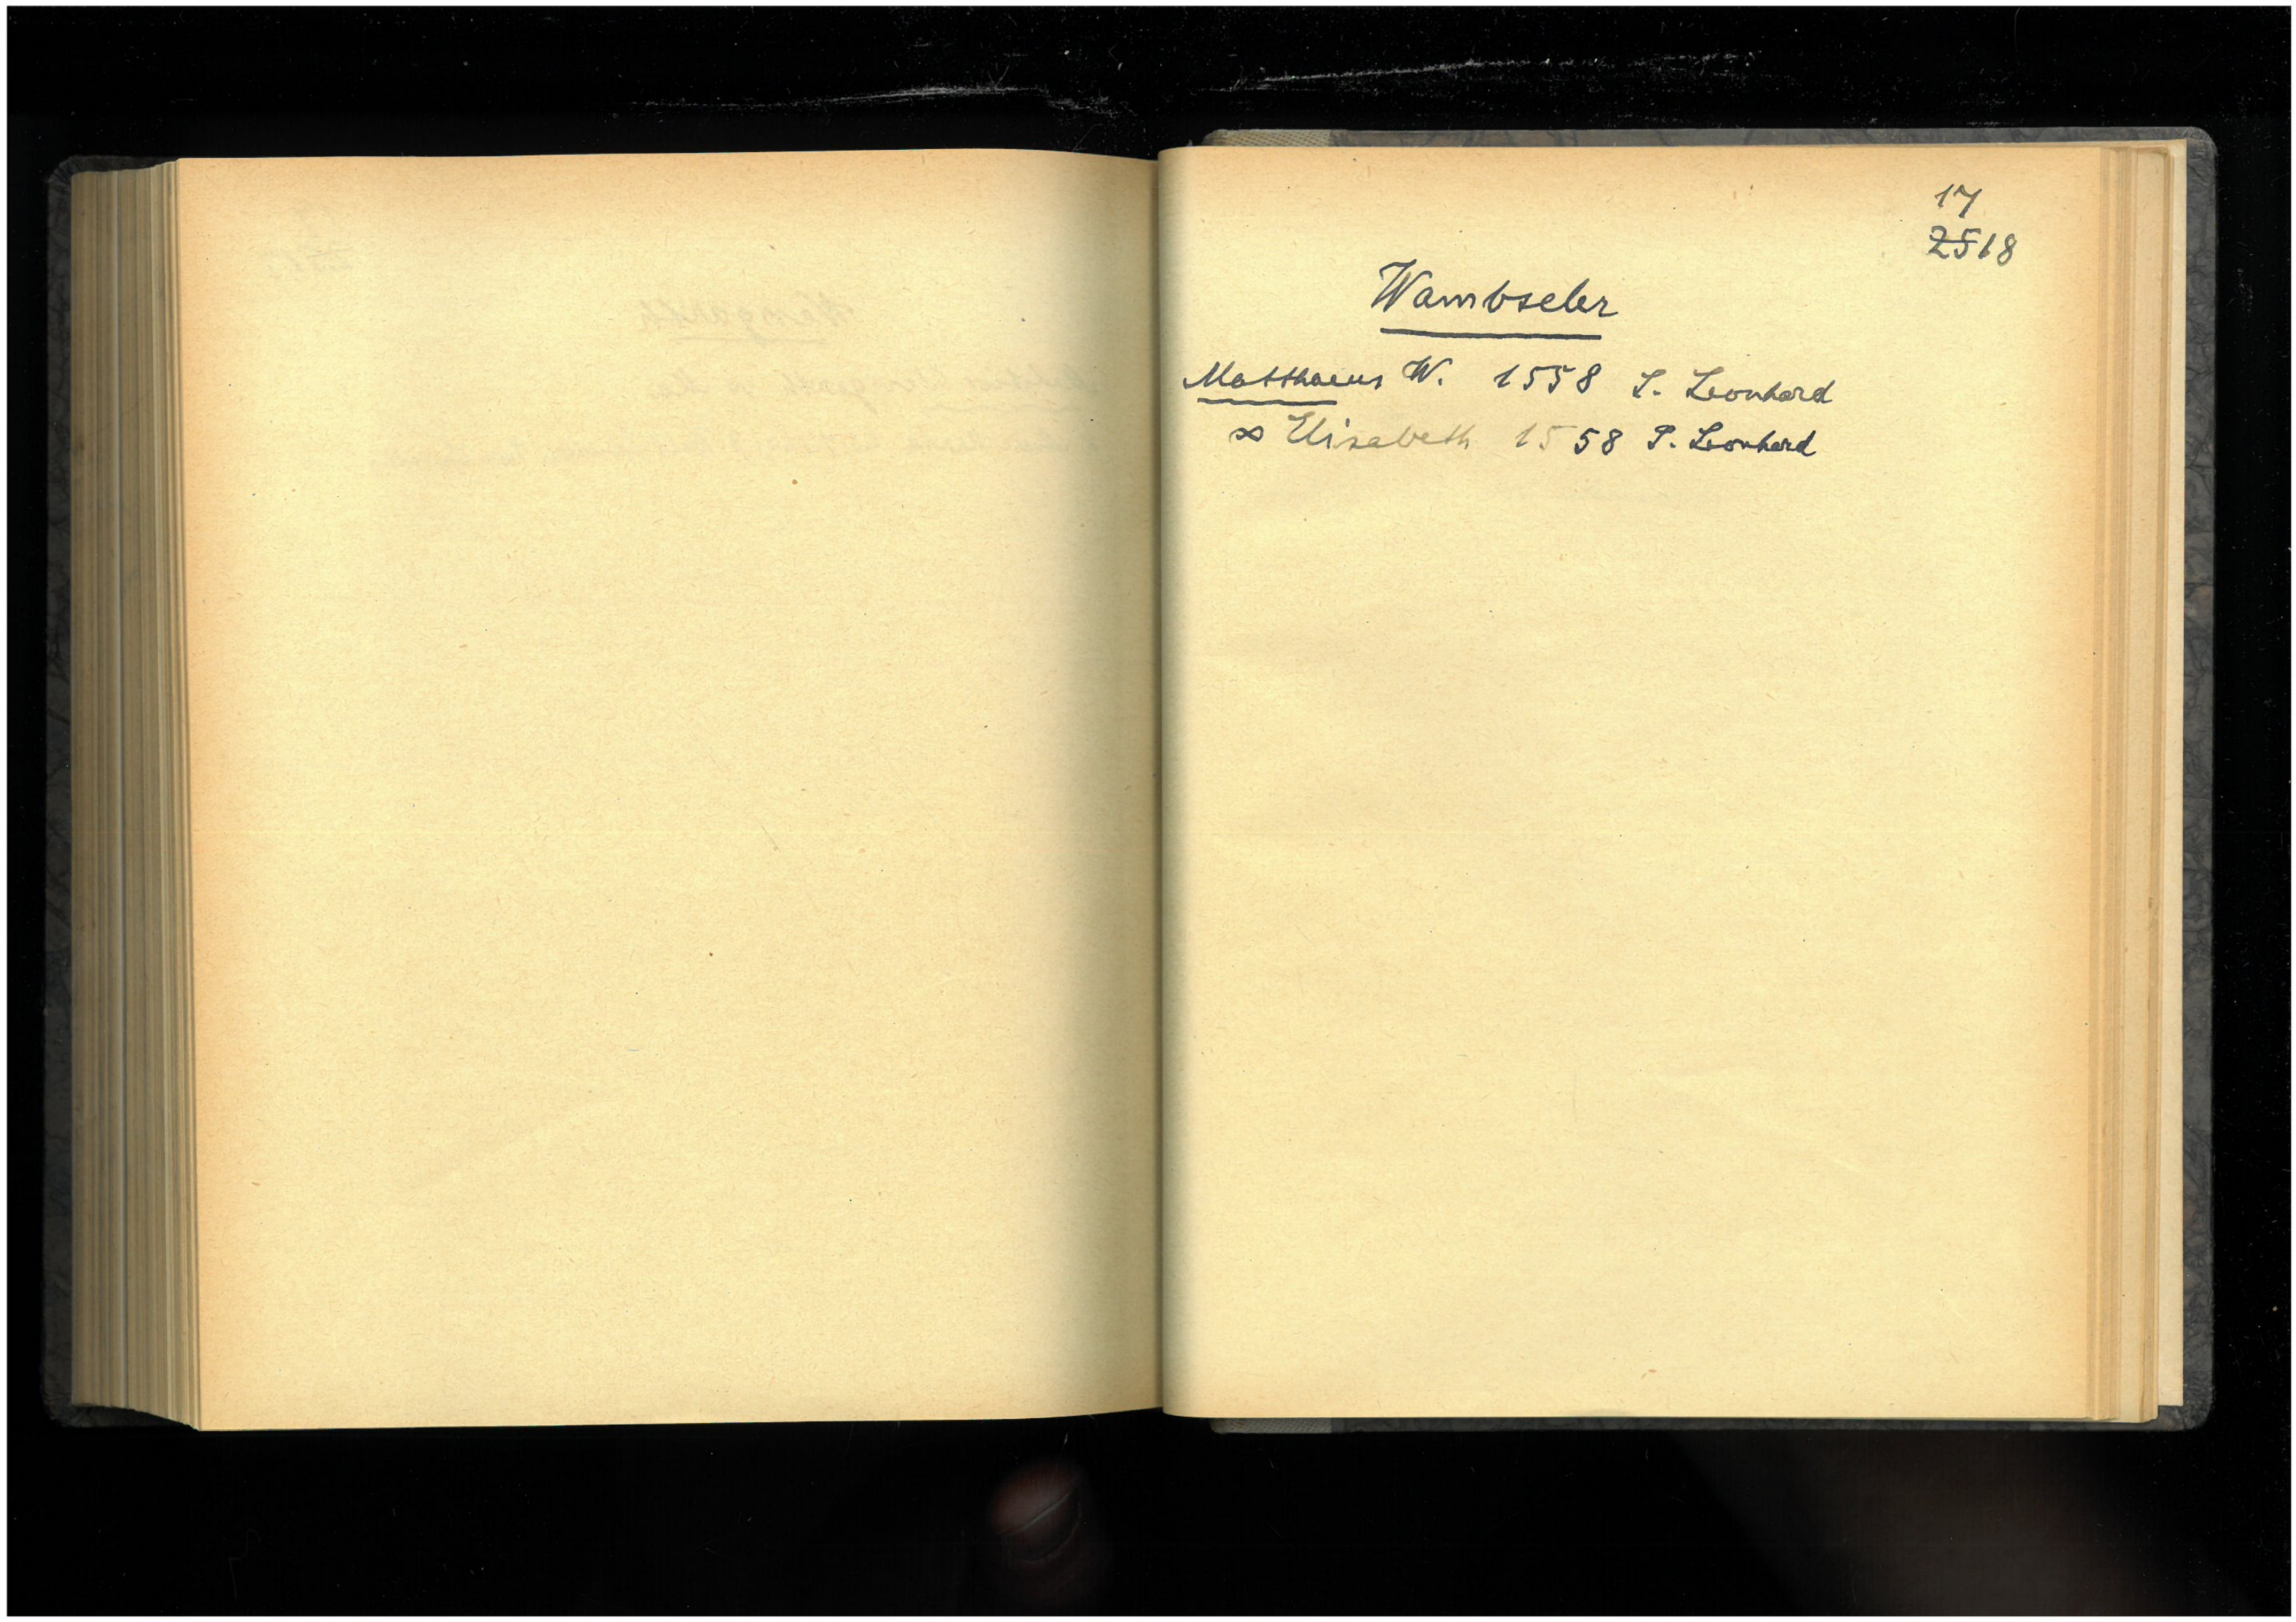 17
2518
Wambseler
Matthaeus W. 1558 S. Leonhard
∞ Elisabeth 1558 S. Leonhard